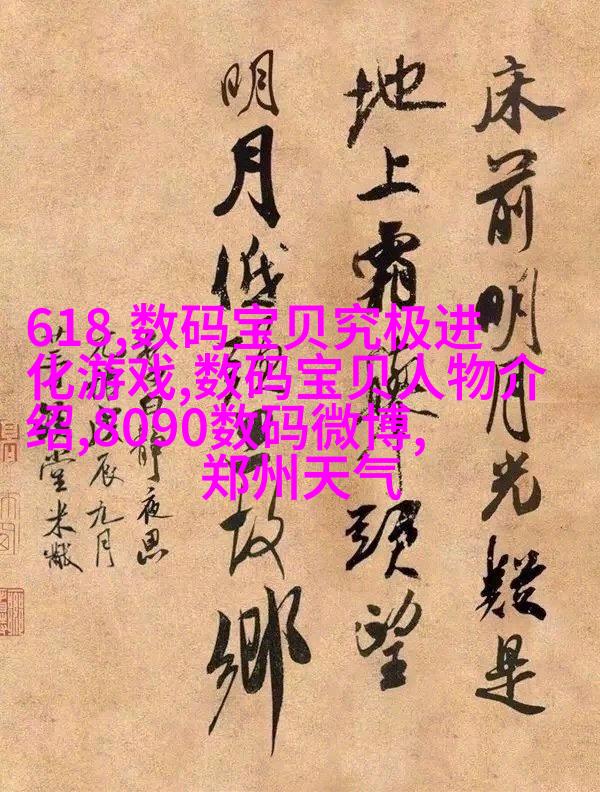 618,数码宝贝究极进
化游戏,数码宝贝人物介
绍,8090数码微博,
郑州天气
床前明月光疑是
地上霜舉頭望
明月低頭思故鄉
李白静夜思
元祐戊辰九月
堂米黻